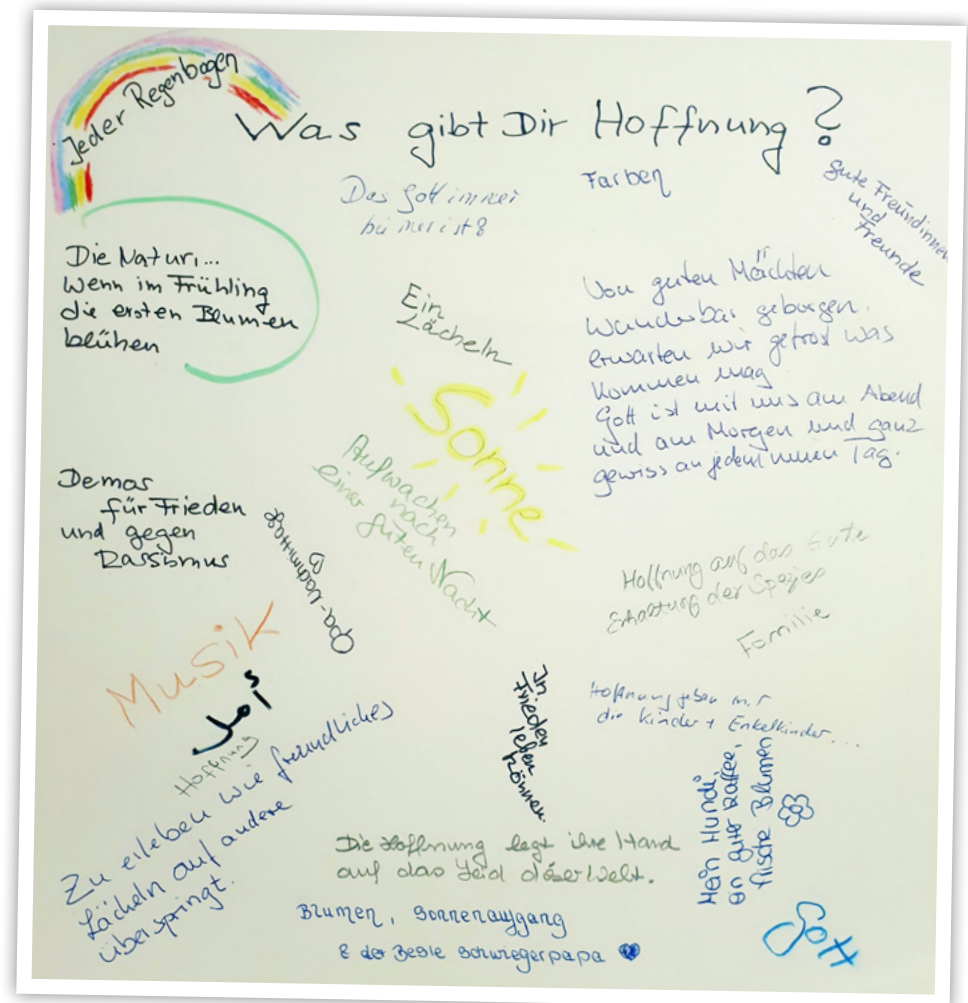 Jeder Regenbogen
Was gibt Dir Hoffnung?
Das Gott immer
bei mir ist
Farben
gute Freundinnen
und
Freunde
Die Natur,...
Wenn im Frühling
die ersten Blumen
blühen
Ein
Lächeln
Von guten Mächten
wunderbar geborgen,
erwarten wir getrost was
kommen mag
Gott ist mit uns am Abend
und am Morgen und ganz
gewiss an jedem neuen Tag.
Sonne
Aufwachen
nach
einer guten Nacht
Demos
für Frieden
und gegen
Rassismus
Opa-Nachmittag
Hoffnung auf das Gute
Erhaltung der Spezies
Familie
Musik
أمل
Hoffnung
In
Frieden
leben
können
Hoffnung geben mir
die Kinder + Enkelkinder...
Mein Hund,
en guter Kaffee,
frische Blumen
Zu erleben wie freundliches
Lächeln auf andere
überspringt.
Die Hoffnung legt ihre Hand
auf das Leid dieser Welt.
Blumen, Sonnenaufgang
& der Beste Schwiegerpapa
Gott